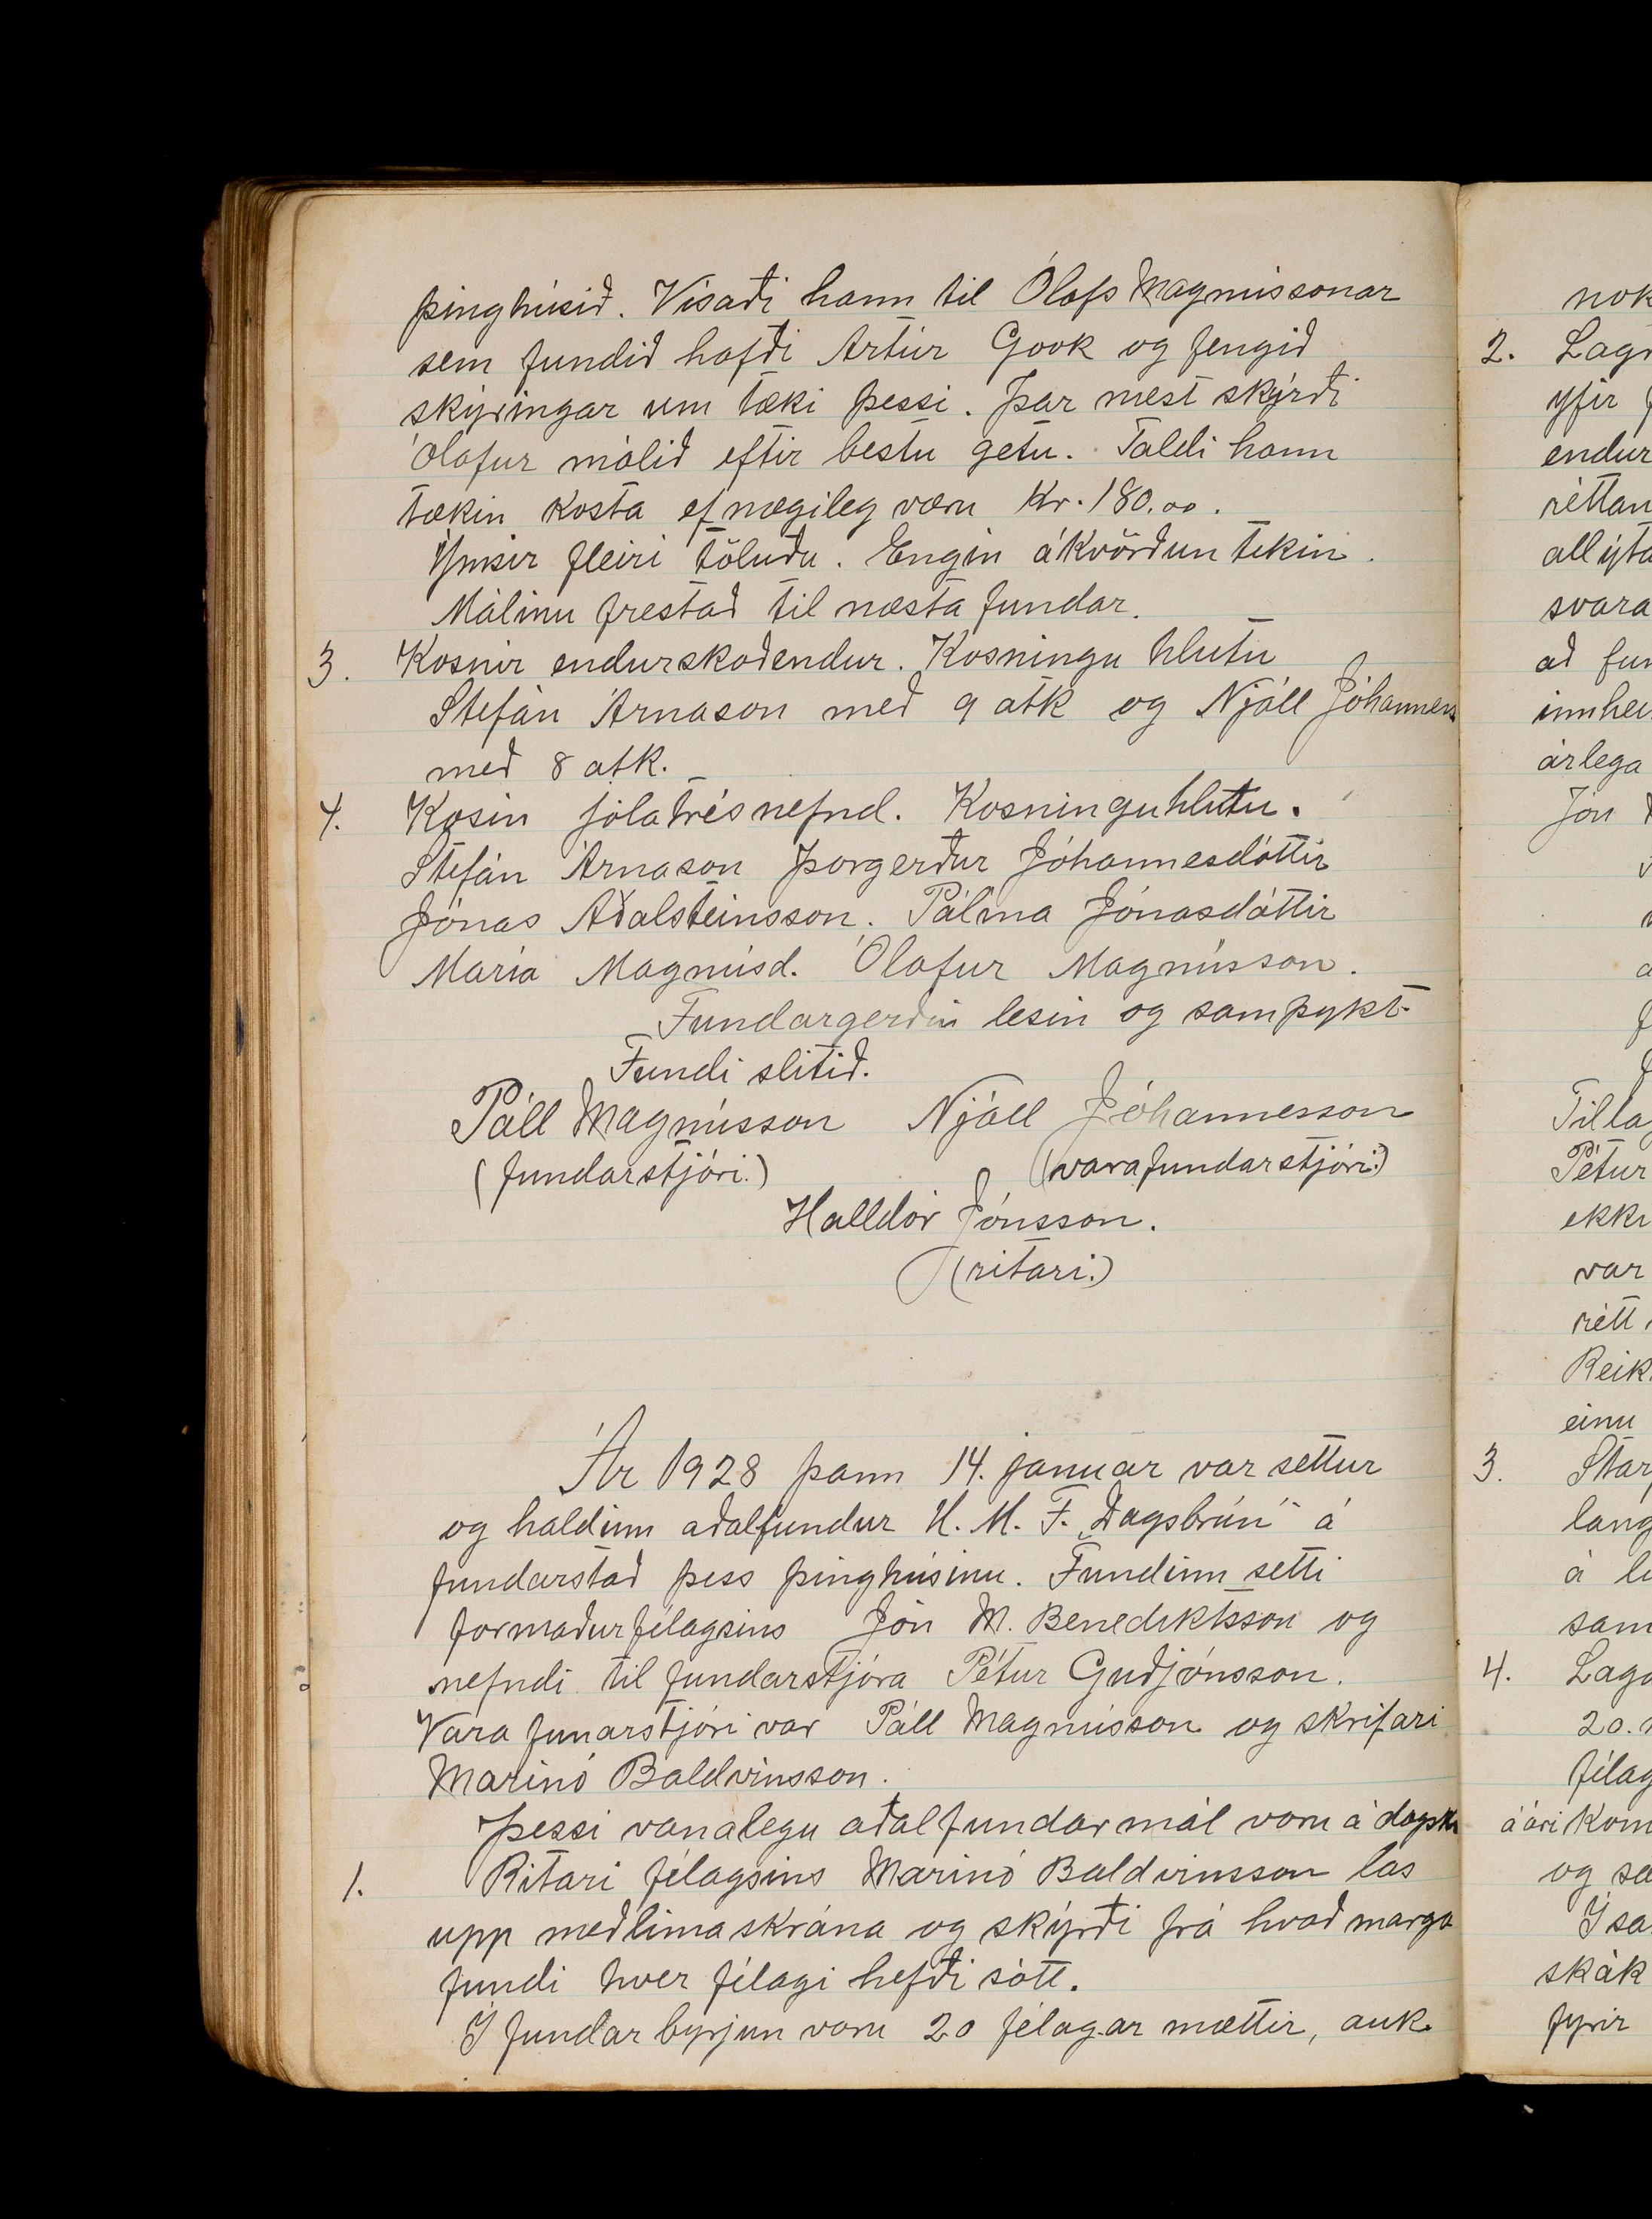 þinghúsið. Vísaði hann til Ólafs Magnússonar
sem fundið hafði Artúr Gook og fengið
skýringar um tæki þessi. Þar næst skýrði
Ólafur málið eftir bestu getu. Taldi hann
tækin kosta ef nægileg væru Kr. 180.00.
Ýmsir fleiri töluðu. Engin ákvörðun tekin.
Málinu frestað til næsta fundar.
3. Kosnir endurskoðendur. Kosningu hlutu
Stefán Árnason með 9 atk og Njáll Jóhanness
með 8 atk.
4. Kosin jólatrésnefnd. Kosningu hlutu.
Stefán Árnason Þorgerður Jóhannesdóttir
Jónas Aðalsteinsson. Pálma Jónasdóttir
María Magnúsd. Ólafur Magnússon.
Fundargerðin lesin og samþykt.
Fundi slitið.
Páll Magnússon Njáll Jóhannesson
(fundarstjóri.) (varafundarstjóri.)
Halldór Jónsson.
(ritari.)
Ár 1928 þann 14. janúar var settur
og haldinn aðalfundur U. M. F. „Dagsbrún" á
fundarstað þess þinghúsinu. Fundinn setti
formaður félagsins Jón M. Benediktsson og
nefndi til fundarstjóra Pétur Guðjónsson.
Vara funarstjóri var Páll Magnússon og skrifari
Marinó Baldvinsson.
Þessi vanalegu aðalfundarmál voru á dagskr
1. Ritari félagsins Marinó Baldvinsson las
upp meðlimaskrána og skýrði frá hvað marga
fundi hver félagi hefði sótt.
Í fundarbyrjun voru 20 félagar mættir, auk
nok
2. Lag
yfir
endur
réttan
all ýta
svara
að fun
innhei
árlega
Jón
Tillag
Pétur
ekki
var
rétt
Reik
einu
3. Star
lang
á
sam
4. Laga
20.
félag
á ári kom
og
Í sa
skák
fyrir